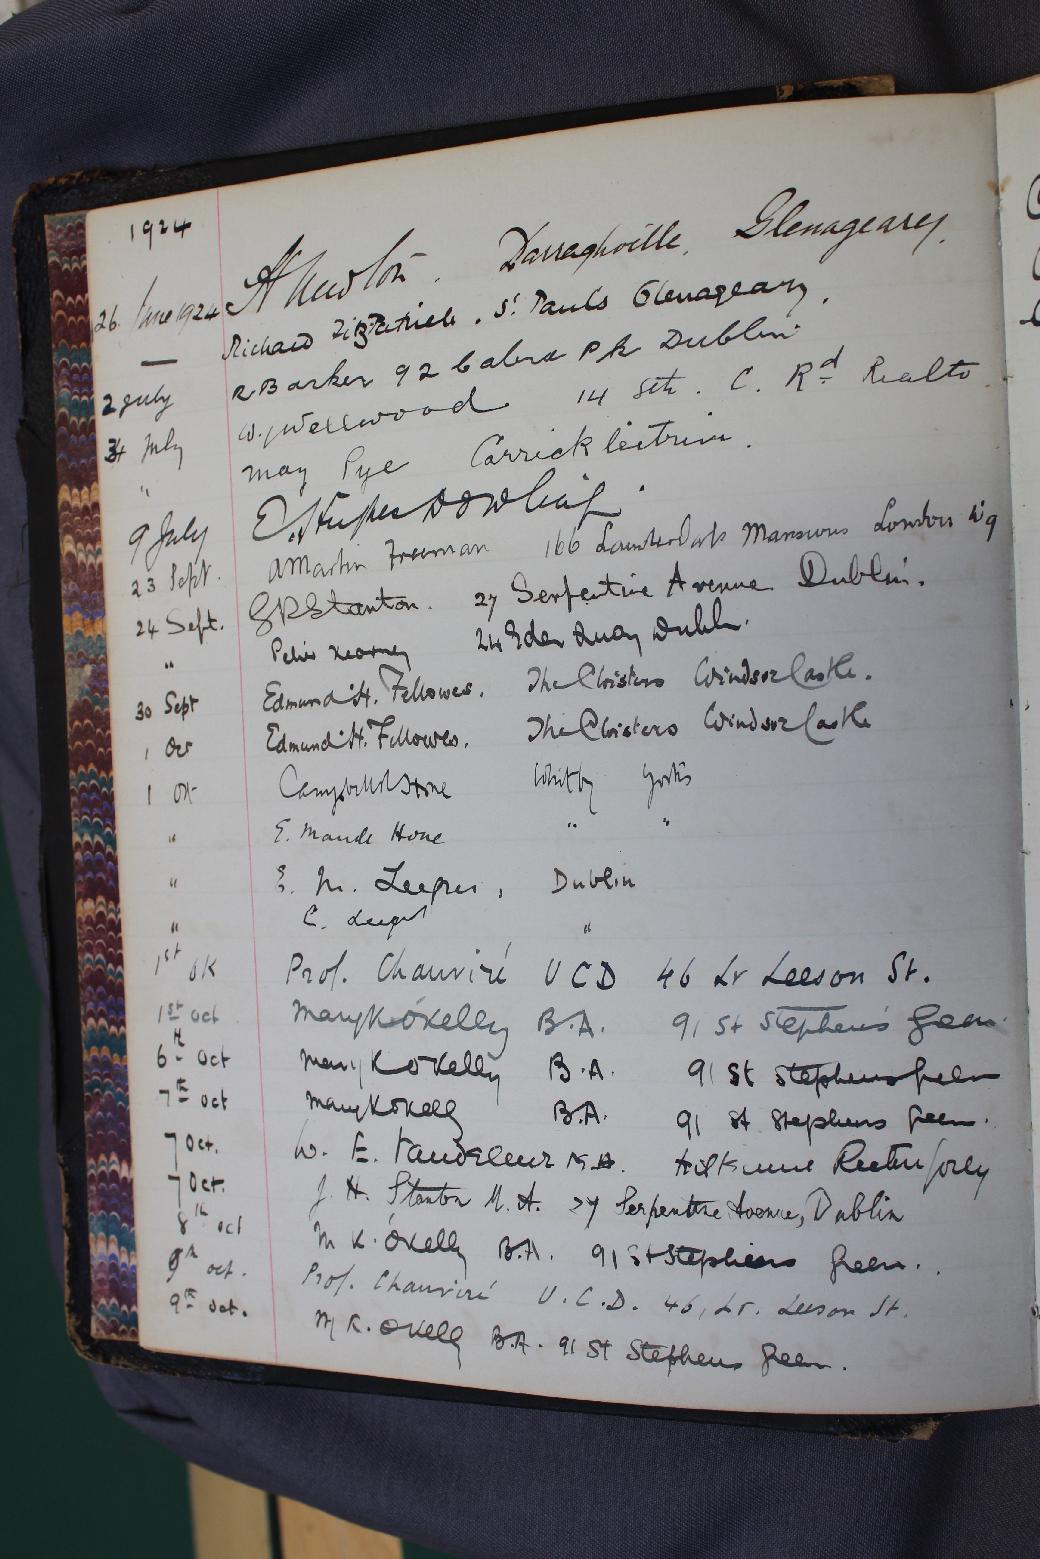 1924
26 June 1924 A Newton. Darraghville, Glenageary.
— Richard Fitzpatrick. St Pauls Glenageary.
2 July R Barker 92 Cabra Pk Dublin
34 July W. J. Wellwood 14 Sth. C. Rd Realto
" May Pye Carrick Leitrim.
9 July E. Dowling
23 Sept. A Martin Freeman 166 Lauderdale Mansions London W9
24 Sept. G P S Stanton. 27 Serpentine Avenue Dublin.
" Peter Kearney 24 Eden Quay Dublin.
30 Sept Edmund H. Fellowes. The Cloisters Windsor Castle.
1 Oct Edmund H. Fellowes. The Cloisters Windsor Castle
1 Oct Campbell Hone Whitby Yorks
" E. Maude Hone " "
" E. M. Leeper, Dublin
" C. Leeper "
1st Oct Prof. Chauviré UCD 46 Lr Leeson St.
1st Oct Mary K O'Kelly B.A. 91 St Stephen's Green.
6th Oct Mary K O'Kelly B.A. 91 St Stephens Green
7th Oct Mary K O'Kelly B.A. 91 St Stephens Green.
7 Oct. W. E. Vandeleur M.A. Rectory
7 Oct. J. H. Stanton M.A. 27 Serpentine Avenue, Dublin
8th Oct M K. O'Kelly B.A. 91 St Stephens Green.
9th Oct. Prof. Chauviré U.C.D. 46, Lr. Leeson St.
9th Oct. M K. O'Kelly B.A. 91 St Stephens Green.